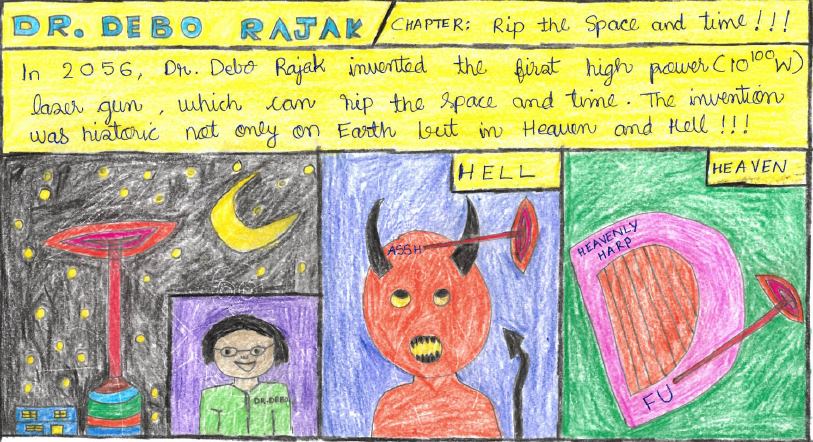 DR. DEBO RAJAK / CHAPTER: Rip the Space and time!!!
In 2056, Dr. Debo Rajak invented the first high power (10¹⁰⁰W)
lazer gun, which can rip the space and time. The invention
was historic not only on Earth but in Heaven and Hell!!!
DR. DEBO
HELL
ASSH
HEAVEN
HEAVENLY
HARP
FU